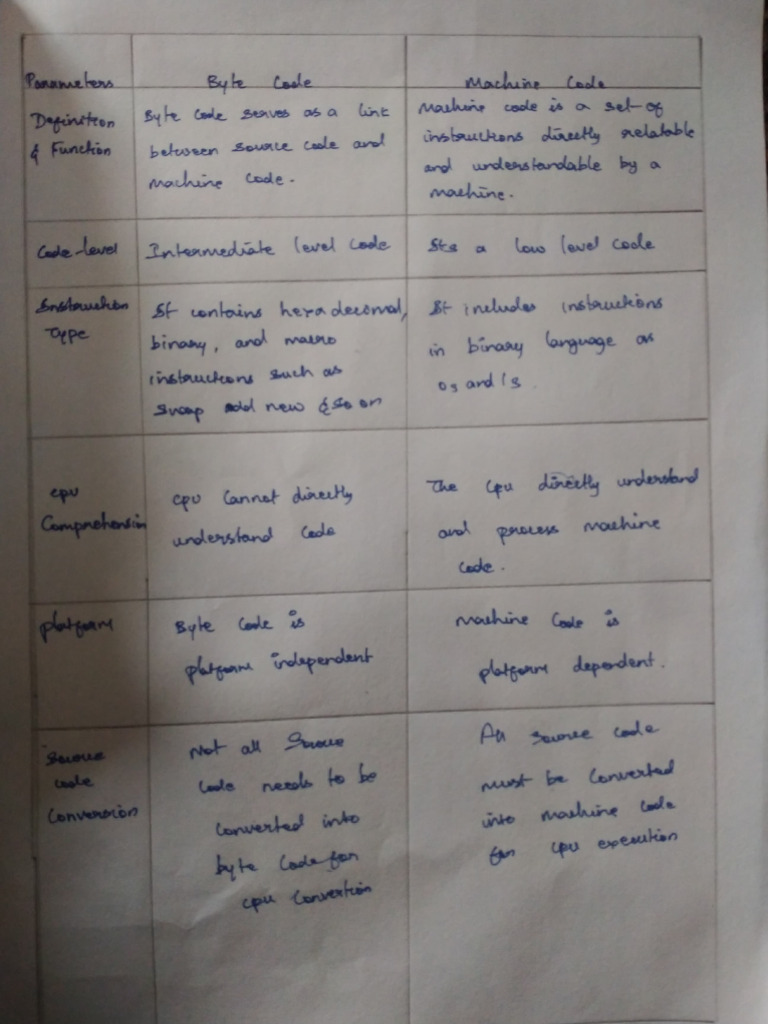 Parameters Byte Code Machine Code
Definition & Function
Byte code serves as a link
between source code and
machine code.
Machine code is a set of
instructions directly relatable
and understandable by a
machine.
Code-level Intermediate level code Its a low level code
Instruction
Type
It contains hexa decimal,
binary, and macro
instructions such as
swap add new & so on
It includes instructions
in binary language as
0s and 1s.
cpu
Comprehension
cpu cannot directly
understand code
The cpu directly understand
and process machine
code.
platform
Byte code is
platform independent
machine code is
platform dependent.
source
code
conversion
Not all Source
code needs to be
converted into
byte code for
cpu convertion
All source code
must be converted
into machine code
for cpu execution